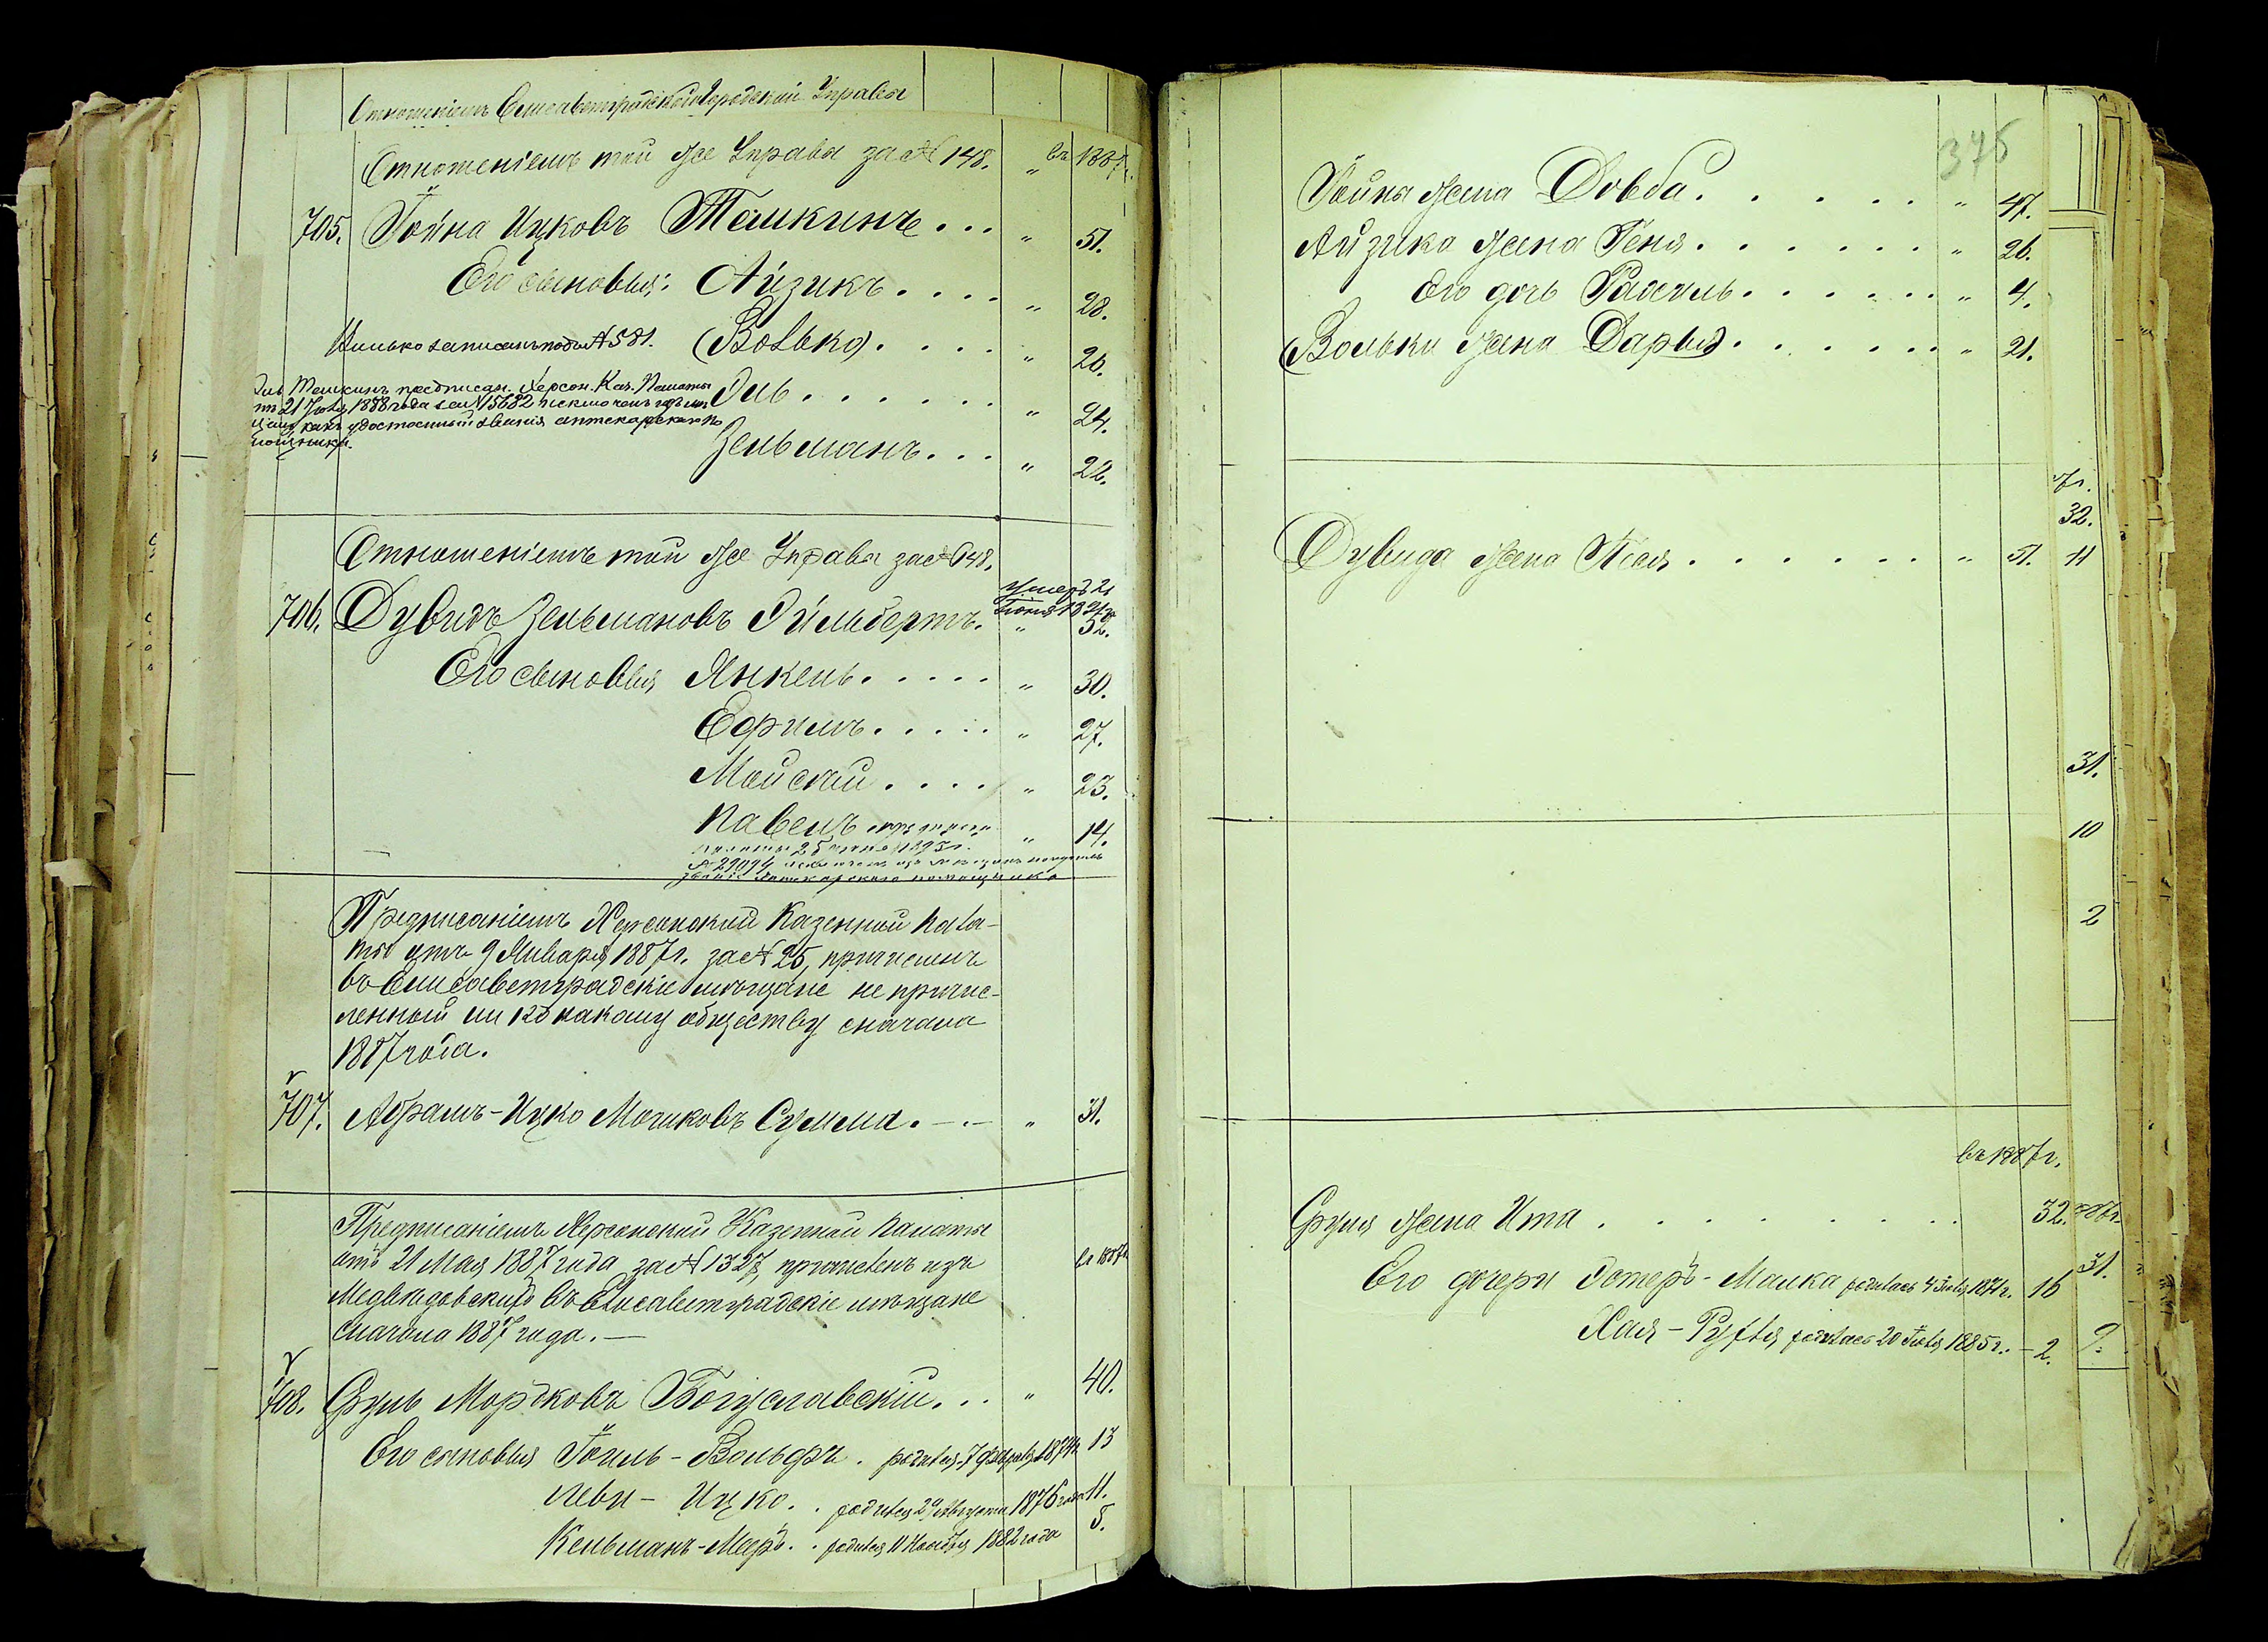 Отношеніемъ Елисаветградской Городской Управы
Отношеніемъ той же Управы за № 148. " въ 1887г.
705. Іойна Ицковъ Темкинъ... " 51.
Его сыновья: Айзикъ.... " 28.
записанъ подъ № 581. (Волько).... " 26.
Эль Темкинъ предписан. Херсон. Каз. Палаты
отъ 21 1888 года за № 15682 исключенъ
какъ удостоенный званія аптекарскаго
Эль...... " 24.
Зельманъ... " 22.
Отношеніемъ той же Управы за № 148.
умеръ 21
Іюня
706. Дувидъ Зельмановъ Эйльбертъ. " 52.
Его сыновья Янкель..... " 30.
Ефримъ..... " 27.
Мойсей.... " 23.
Павелъ " 14.
званіе Аптекарскаго помощника
Предписаніемъ Херсонской Казенной Пала-
ты отъ 9 Января 1887г. за № 25, причисленъ
въ Елисаветградскіе мѣщане не причис-
ленный ни къ какому обществу сначала
1887 года.
707. Абрамъ-Ицко Мошковъ Сумма. " 31.
Предписаніемъ Херсонской Казенной Палаты
отъ 21 Мая 1887 года за № 1327, причисленъ изъ
Медвѣдовскихъ въ Елисаветградскіе мѣщане
сначала 1887 года.— въ 1887г.
708. Сруль Мордковъ Богуславскій... " 40.
Его сыновья Іоиль-Вольфъ. родился 7 Февраля 1874г. 13
Леви-Ицко.. родился Августа 1876 года 11.
Кельманъ-Меръ.. родился 11 Ноября 1882 года 5.
376
Іойна жена Довба...... " 47.
Айзика жена Геня...... " 26.
Его дочь Рахиль...... " 4.
(Вольки жена Дарья)...... " 21.
7г.
32.
Дувида жена Песя...... " 51. 11
31.
10
2
въ 1887г.
Сруля жена Ита........ 32.
31.
Его дочери Эстеръ-Малка родилась 4 1871г. 16
Хая-Руфля родилась 20 1885г. — 2. 9.